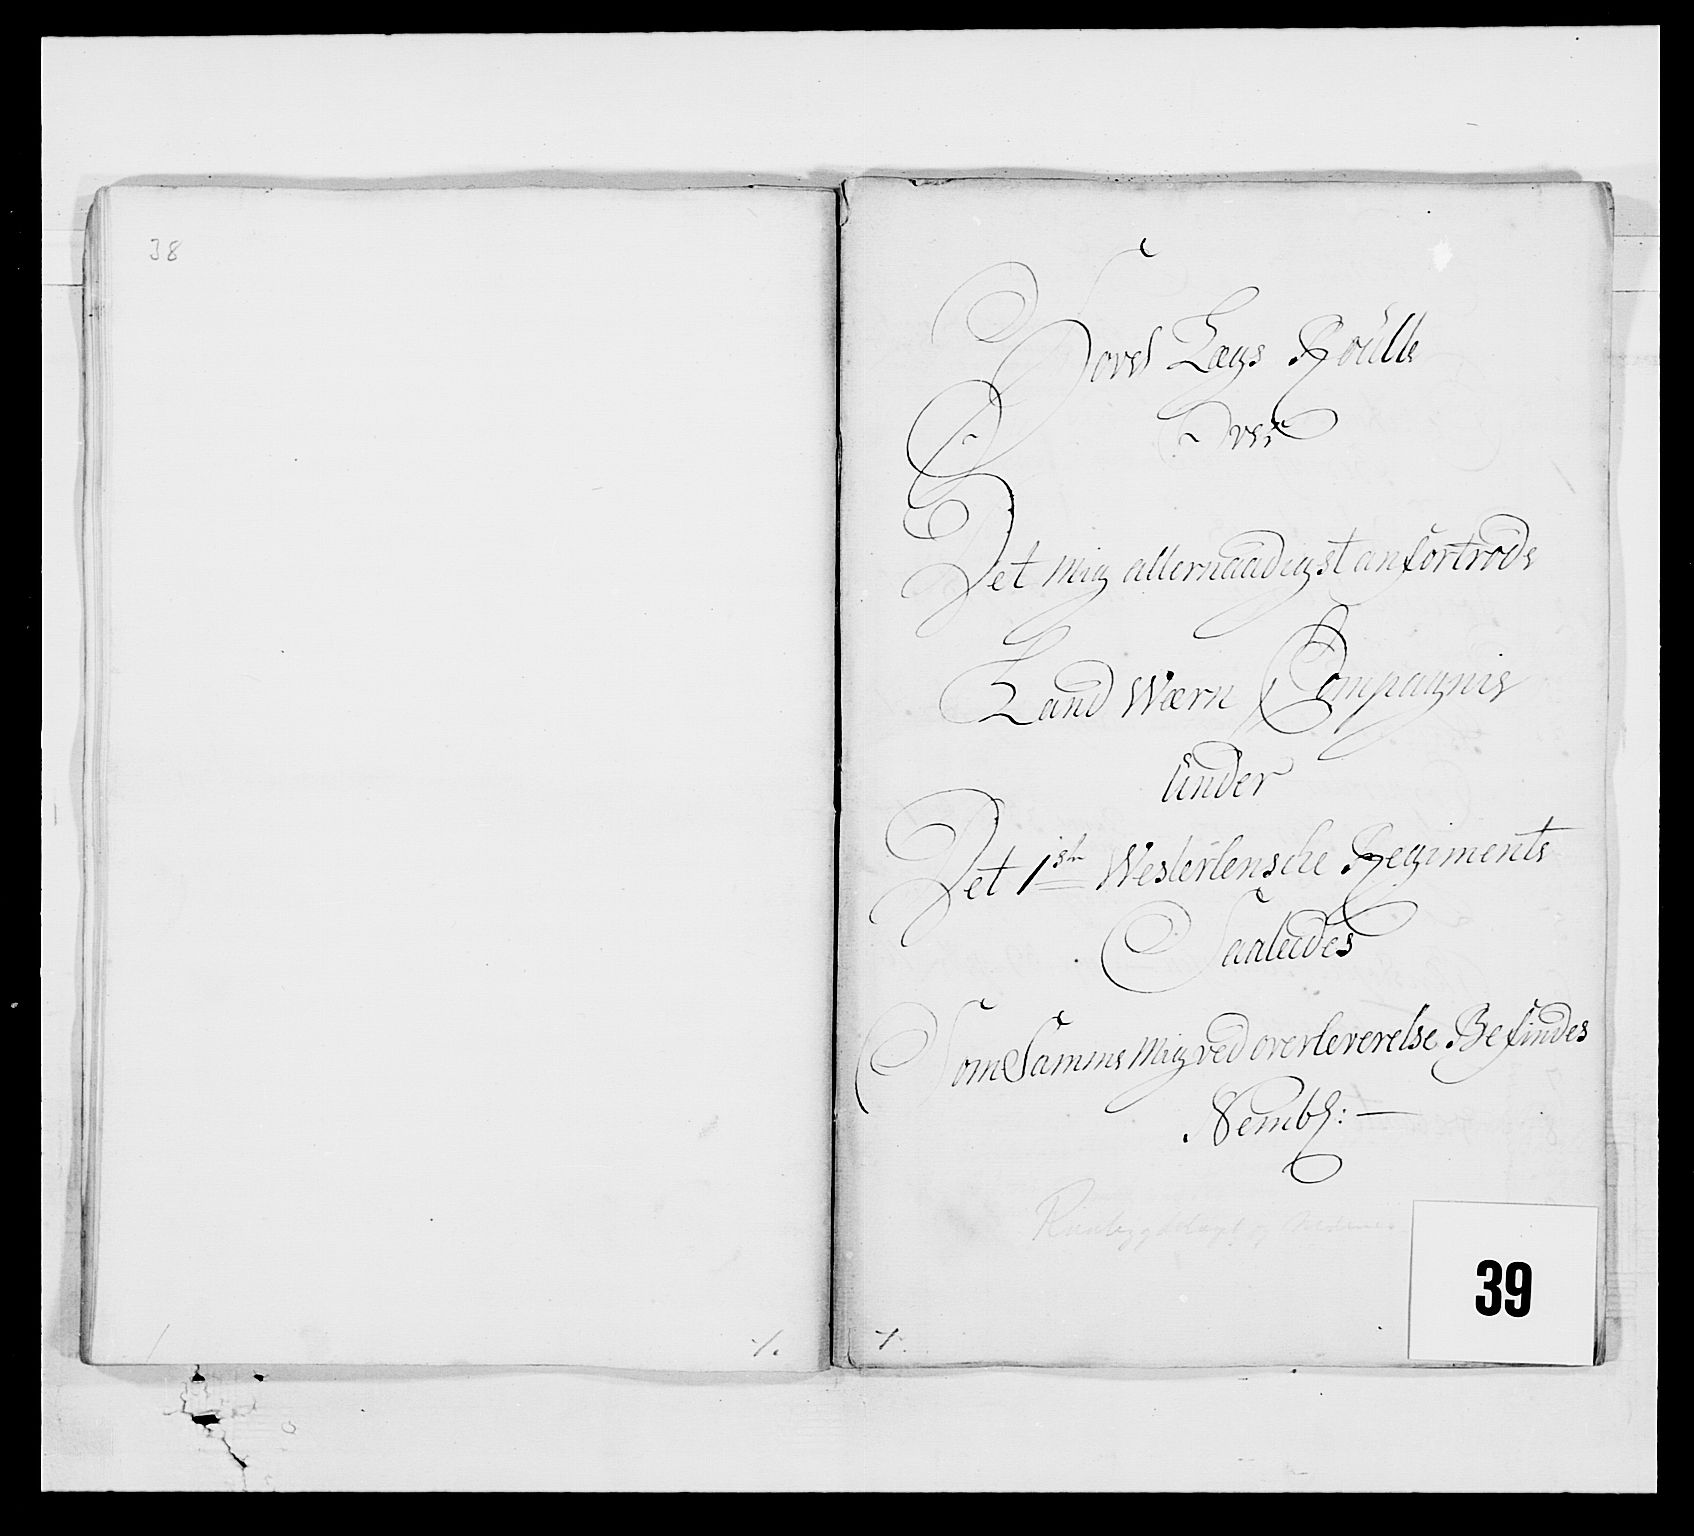 38
Hoved Lægs Roülle
Over
Det mig allernaadigst anfortrode
Land Wærn Compagnie
ünder
Det 1ste Westerlensche Regimente
Saaledes
Som Samme Mig ved overleverelse Befindes
Nembl: —
og
39